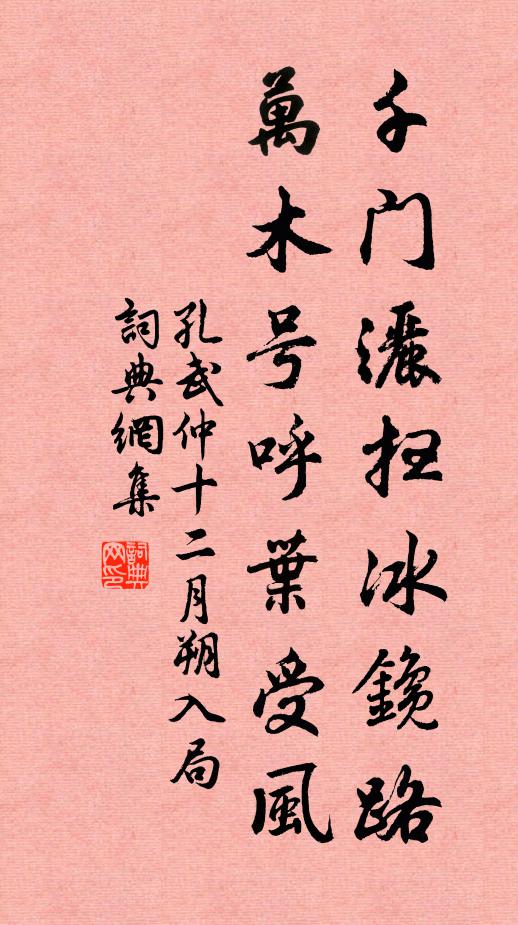 千门灑扫冰鑱路
萬木号呼葉受風
孔武仲十二月朔入局
詞典網集
詞典
网印